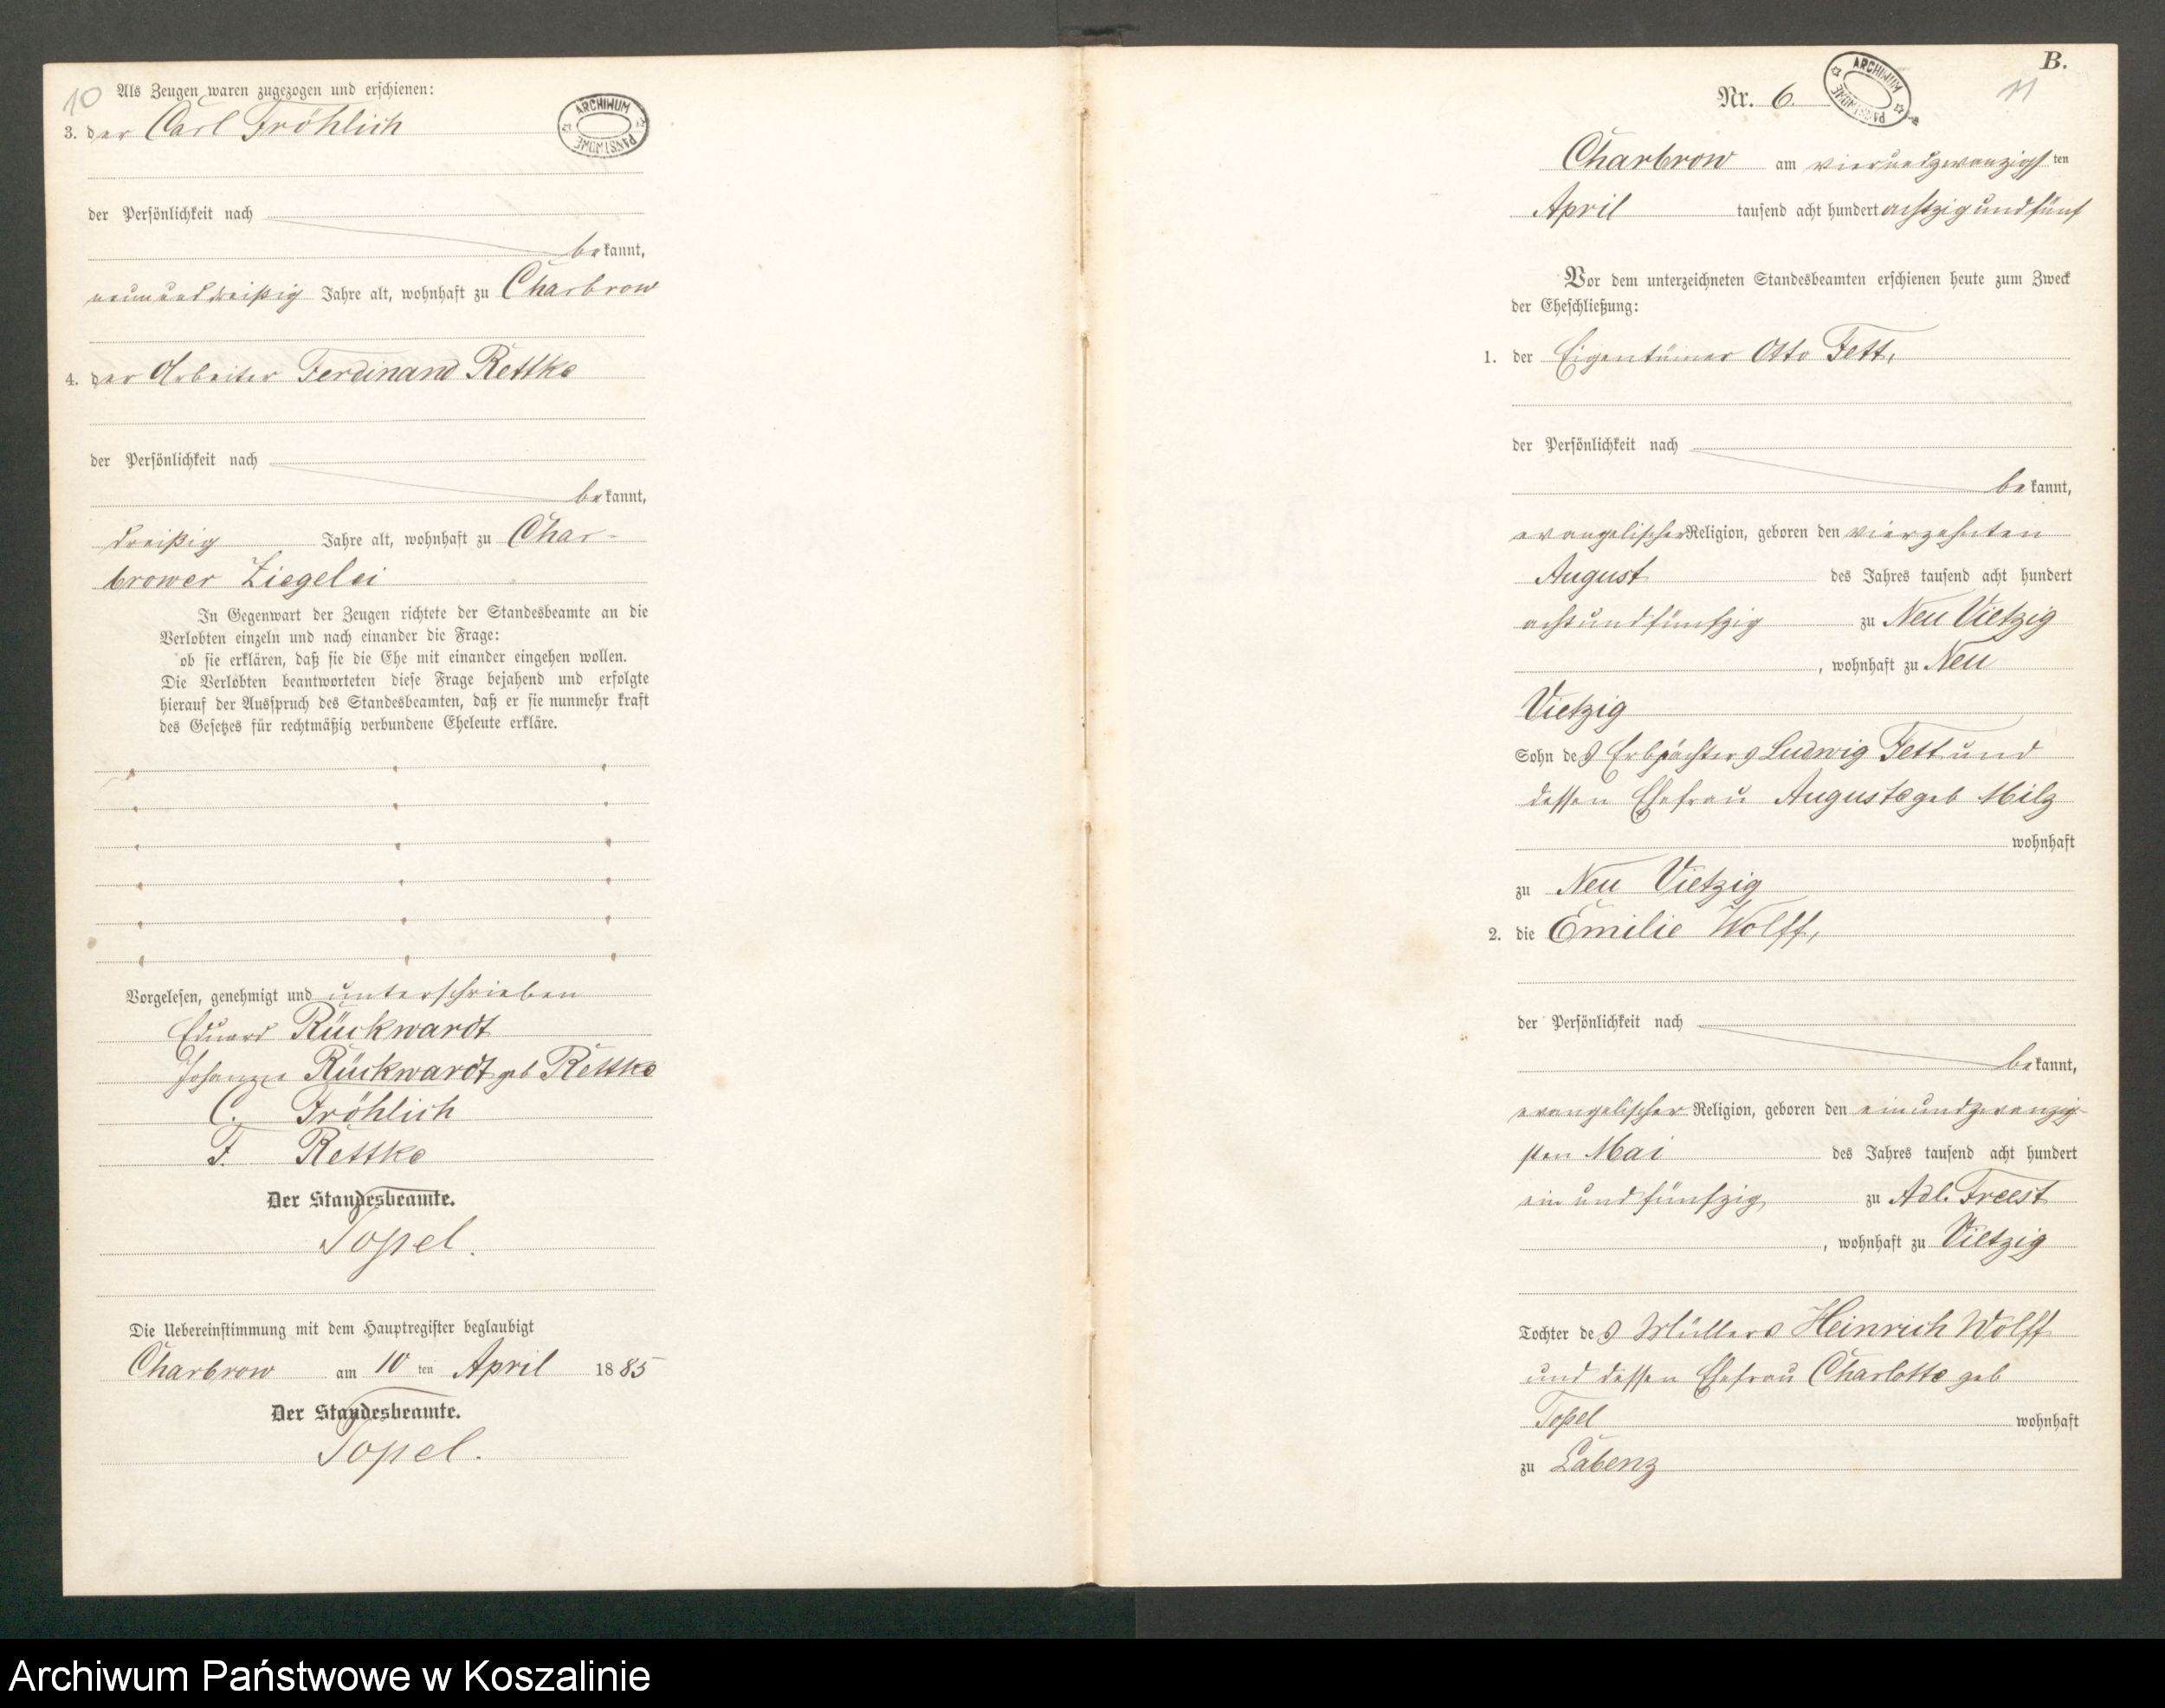 10
Als Zeugen waren zugezogen und erschienen:
3. der Carl Fröhlich
ARCHIWUM PAŃSTWOWE
der Persönlichkeit nach
bekannt,
neununddreißig Jahre alt, wohnhaft zu Charbrow
4. der Arbeiter Ferdinand Rettke
der Persönlichkeit nach
bekannt,
dreißig Jahre alt, wohnhaft zu Char-
brower Ziegelei
In Gegenwart der Zeugen richtete der Standesbeamte an die
Verlobten einzeln und nach einander die Frage:
ob sie erklären, daß sie die Ehe mit einander eingehen wollen.
Die Verlobten beantworteten diese Frage bejahend und erfolgte
hierauf der Ausspruch des Standesbeamten, daß er sie nunmehr kraft
des Gesetzes für rechtmäßig verbundene Eheleute erkläre.
Vorgelesen, genehmigt und unterschrieben
Eduard Rückwardt
Johanna Rückwardt geb Rettke
C. Fröhlich
F. Rettke
Der Standesbeamte.
Topel.
Die Uebereinstimmung mit dem Hauptregister beglaubigt
Charbrow am 10 ten April 1885
Der Standesbeamte.
Topel.
B.
11
Nr. 6.
ARCHIWUM PAŃSTWOWE
Charbrow am vierundzwanzigsten
April tausend acht hundert achtzig und fünf
Vor dem unterzeichneten Standesbeamten erschienen heute zum Zweck
der Eheschließung:
1. der Eigentümer Otto Fett,
der Persönlichkeit nach
bekannt,
evangelischer Religion, geboren den vierzehnten
August des Jahres tausend acht hundert
achtundfünfzig zu Neu Vietzig
, wohnhaft zu Neu
Vietzig
Sohn des Erbpächters Ludwig Fett und
dessen Ehefrau Auguste geb Milz
wohnhaft
zu Neu Vietzig
2. die Emilie Wolff,
der Persönlichkeit nach
bekannt,
evangelischer Religion, geboren den einundzwanzig-
sten Mai des Jahres tausend acht hundert
ein und fünfzig zu Adl. Freest
, wohnhaft zu Vietzig
Tochter des Müllers Heinrich Wolff
und dessen Ehefrau Charlotte geb
Topel wohnhaft
zu Labenz
Archiwum Państwowe w Koszalinie